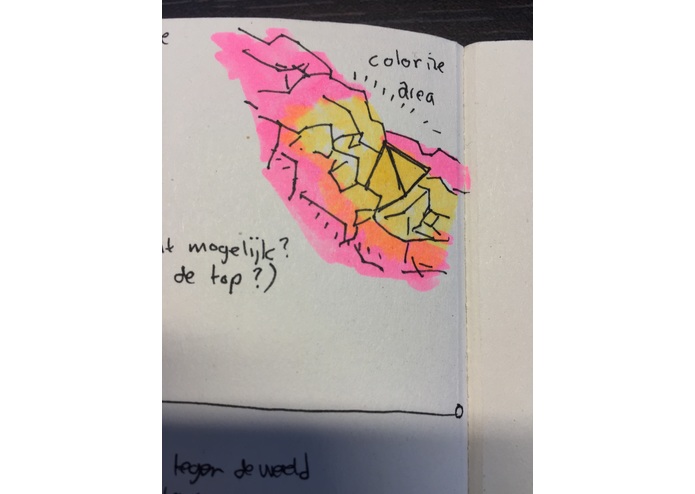 e
colorize
area
t mogelijk?
de top?)
tegen de wereld